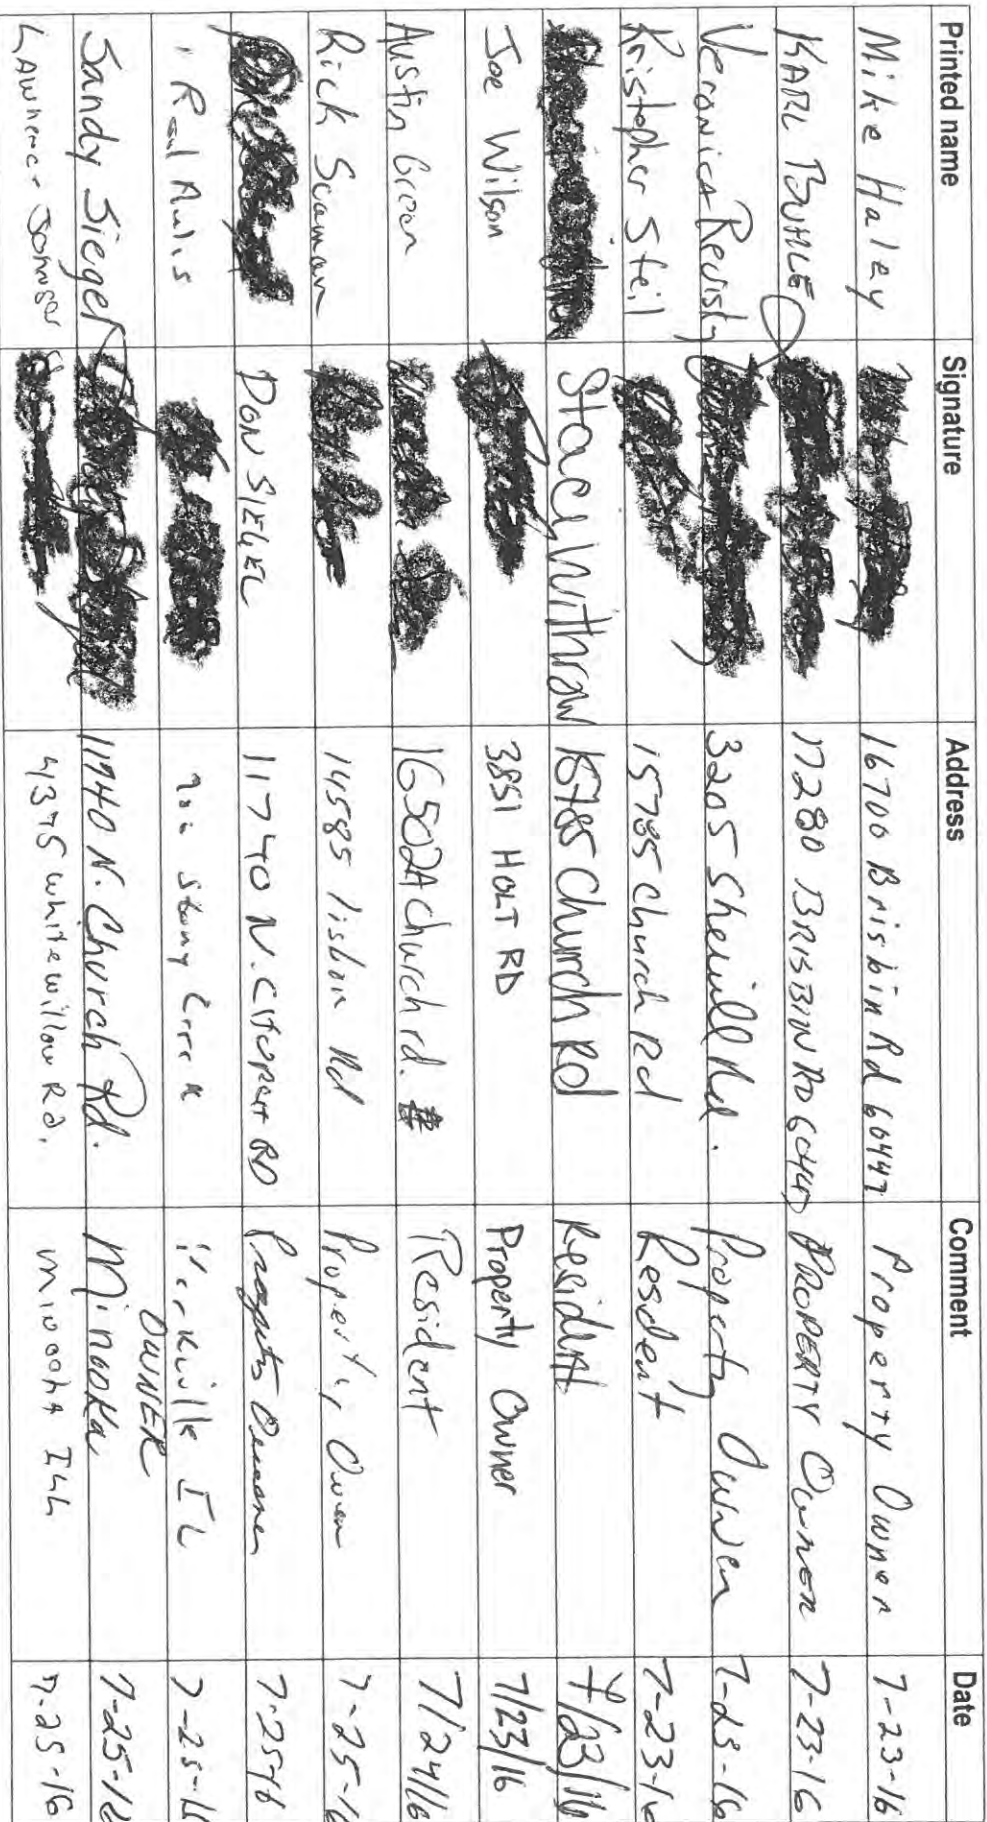 Printed name Signature Address Comment Date
Mike Haley 16700 Brisbin Rd 60447 Property Owner 7-23-16
KARL 17280 BRISBIN RD 60447 PROPERTY OWNER 7-23-16
Veronica 3205 Sherrill Rd. Property Owner 7-23-16
Kristopher Steil 15785 Church Rd Resdent 7-23-16
Stacey Withrow 15785 Church Rd Resident 7/23/16
Joe Wilson 3851 HOLT RD Property Owner 7/23/16
Austin Green 16502A Church rd. Resident 7/24/16
Rick 14585 lisbon Rd Property Owner 7-25-16
DON SIEGEL 11740 N. CHURCH RD Property Owner 7-25-16
Stony Creek IL 7-25-16
Sandy Siegel 11740 N. Church Rd. OWNER Minooka 7-25-16
4395 whitewillow Rd. 7-25-16